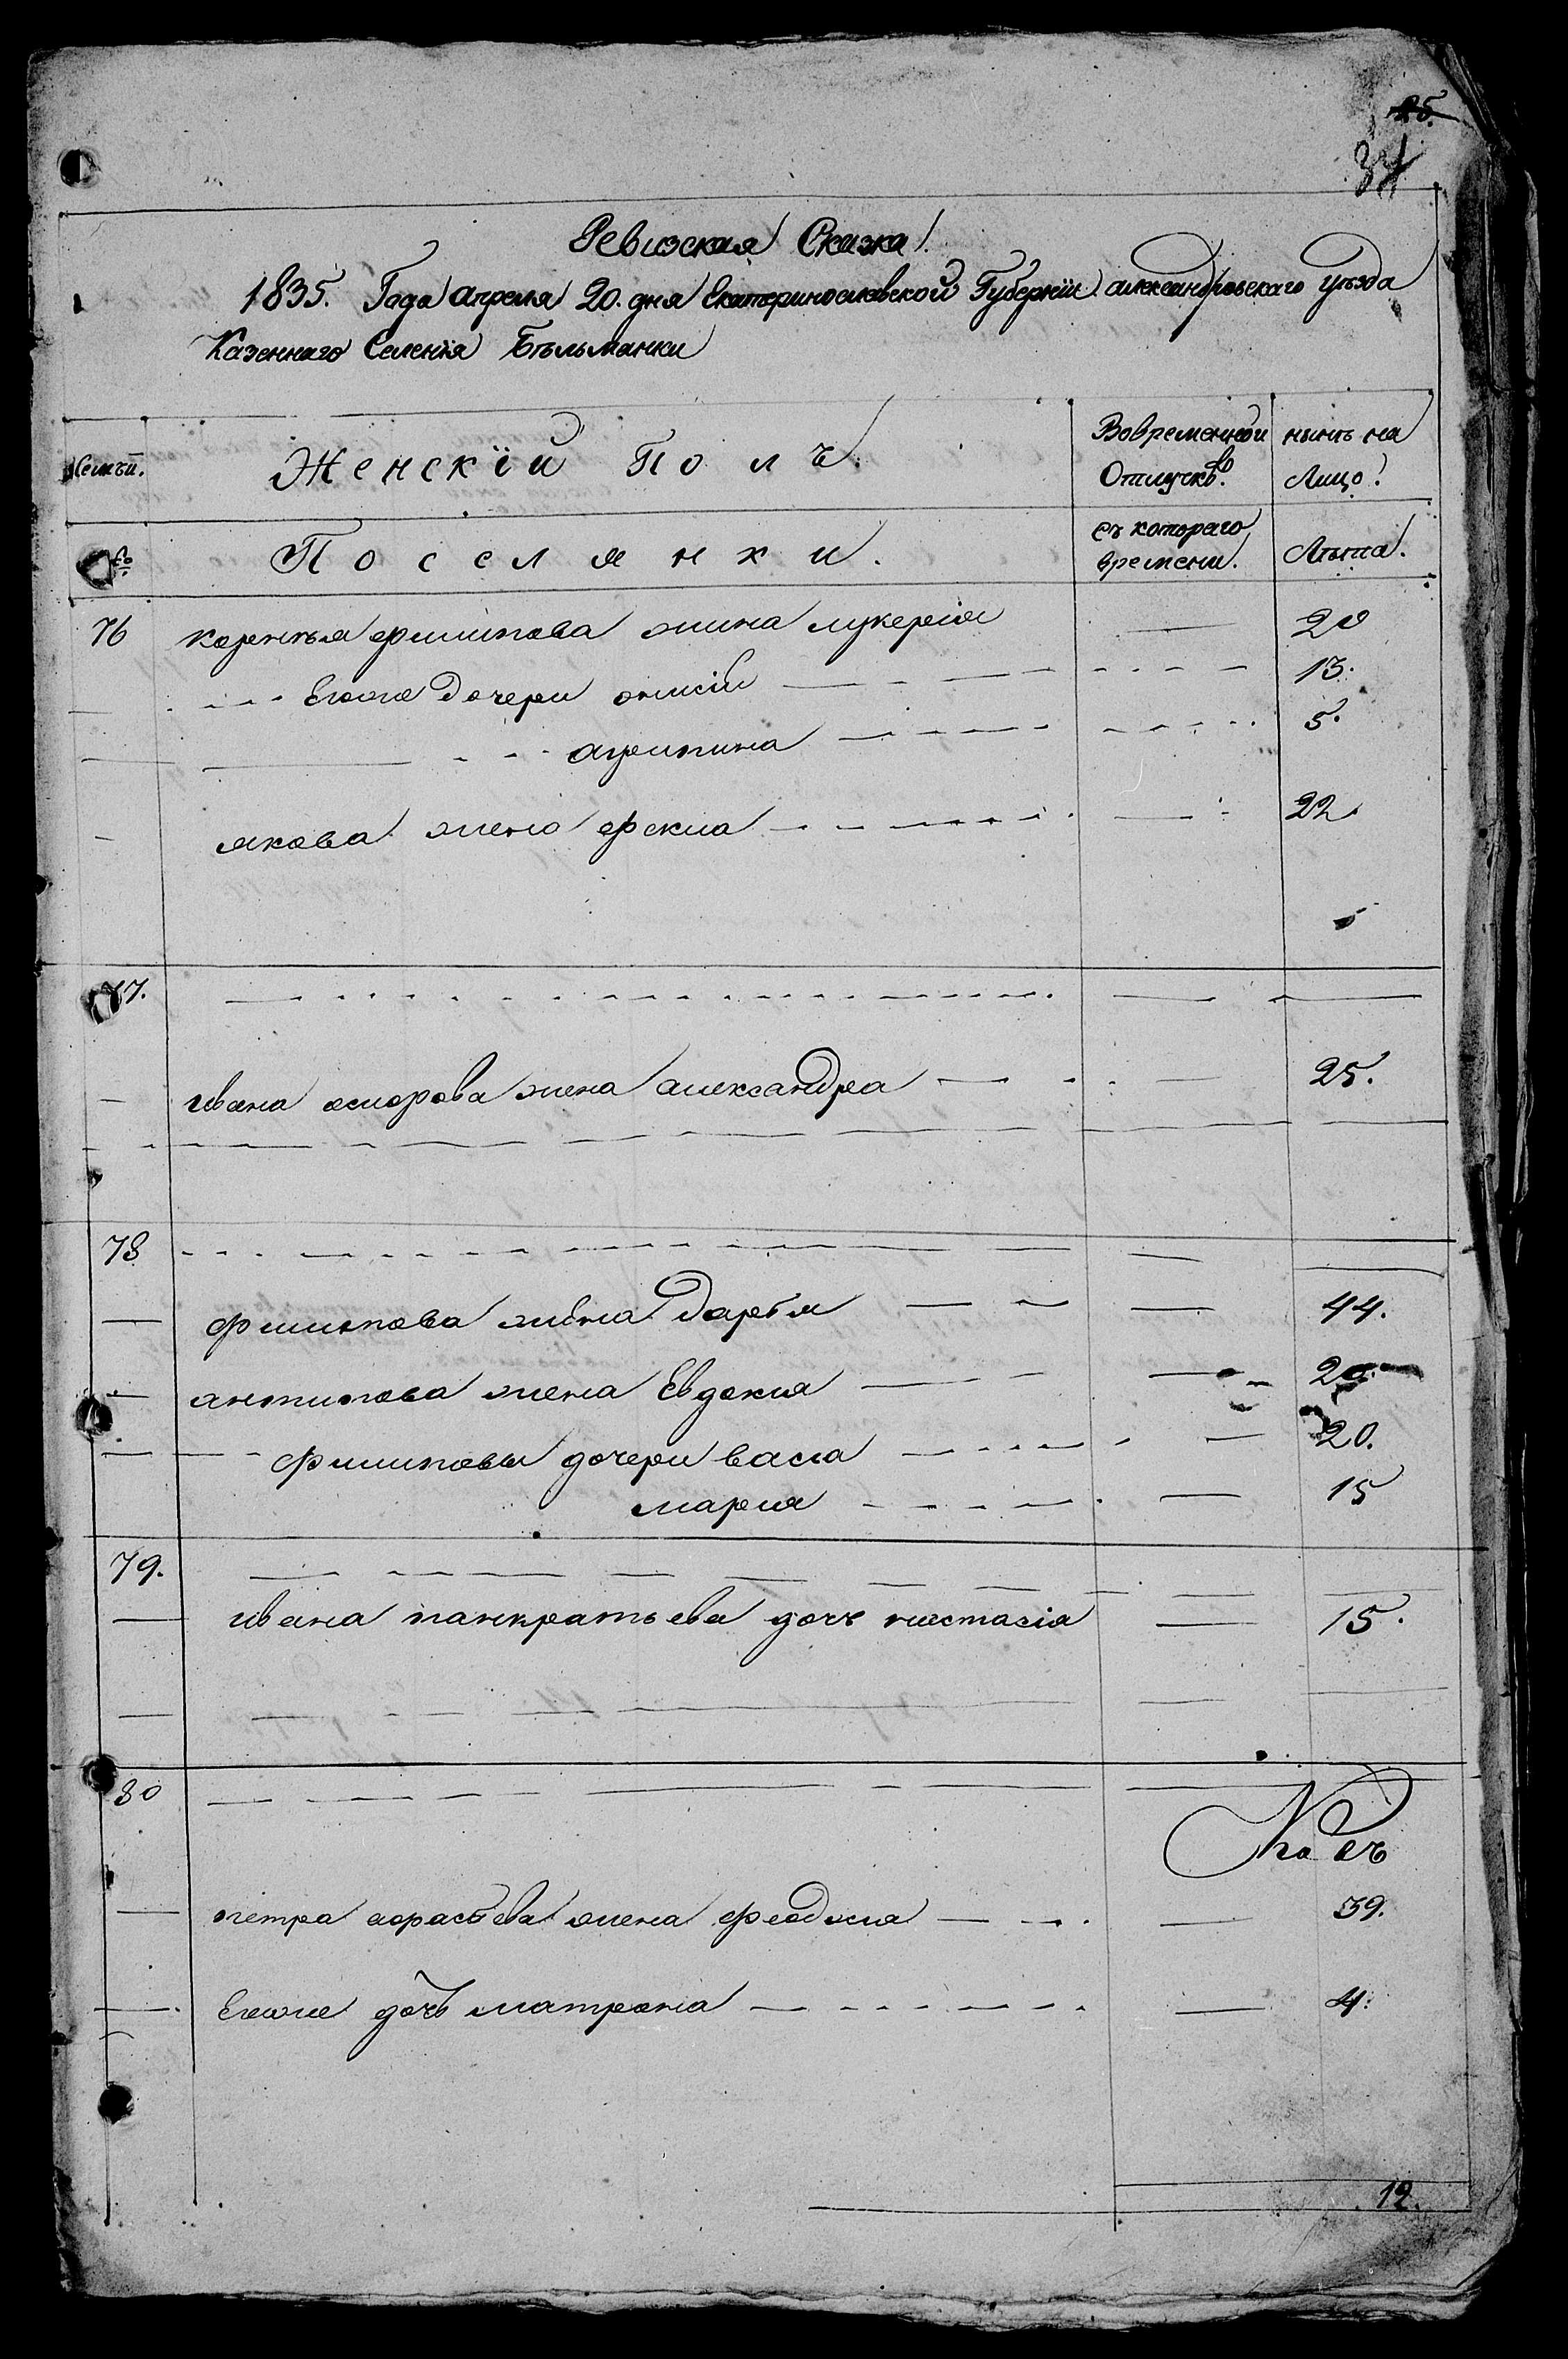 25.
34
Ревизская Сказка!
1835. Года апреля 20. дня Екатеринославской Губернїи александровскаго уезда
Казеннаго Селенїя Бѣльманки
Семѣй.
Женскїй Полъ.
Вовременной Отлучкѣ.
нынѣ на Лицо.
Поселянки.
съ котораго времени.
Лѣта.
76 филипова жина лукерїя 20
Егоже Дочери 13.
агрипина 5.
якова жена фекла 22
77.
ивана жена александра 25.
78
филипова жена Дарья 44.
антипова жена Евдокия 20.
филиповы дочери васа 20.
мария 15
79.
ивана панкратьева дочъ настасїя 15.
80
петра жена феодосия 39.
Егоже дочь матрона 4.
12.